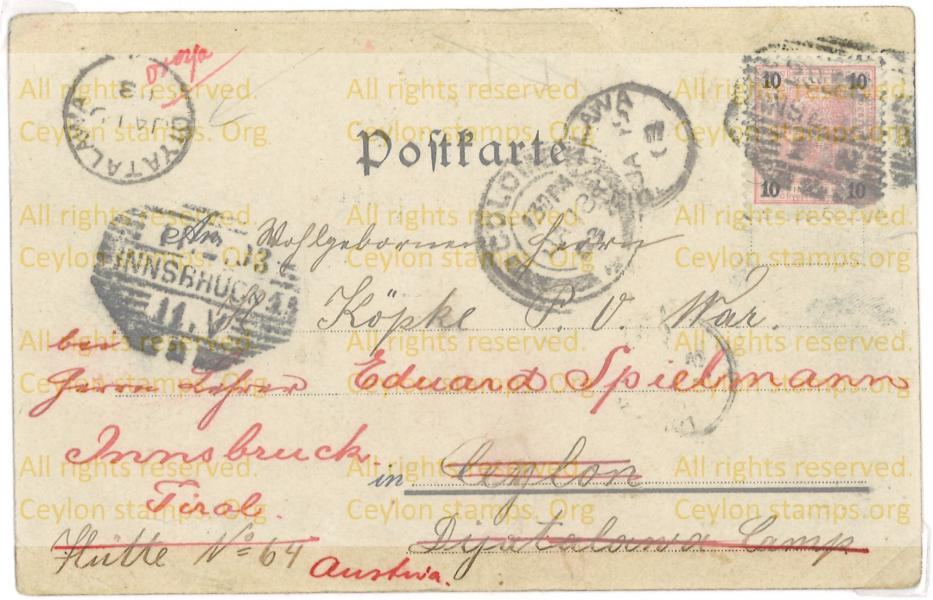 All rights reserved. All rights reserved. All rights reserved.
Ceylon stamps. Org Ceylon stamps. Org Ceylon stamps. Org
DIYATALAWA
JA
10 10
10 10
Postkarte
COLOMBO
Wohlgebornen Herrn
All rights reserved. All rights reserved. All rights reserved.
Ceylon stamps. Org Ceylon stamps. Org Ceylon stamps. Org
INNSBRUCK 1
Köpke P. V. War.
bei
Herrn Lehrer Eduard Spielmann
All rights reserved. All rights reserved. All rights reserved.
Ceylon stamps. Org Ceylon stamps. Org Ceylon stamps. Org
Innsbruck
in Ceylon
Tirol.
All rights reserved. All rights reserved. All rights reserved.
Ceylon stamps. Org Ceylon stamps. Org Ceylon stamps. Org
Hütte No 64 Diyatalawa Camp
Austria.